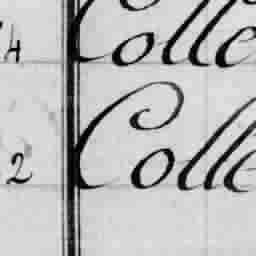 4 Colle
2 Colle